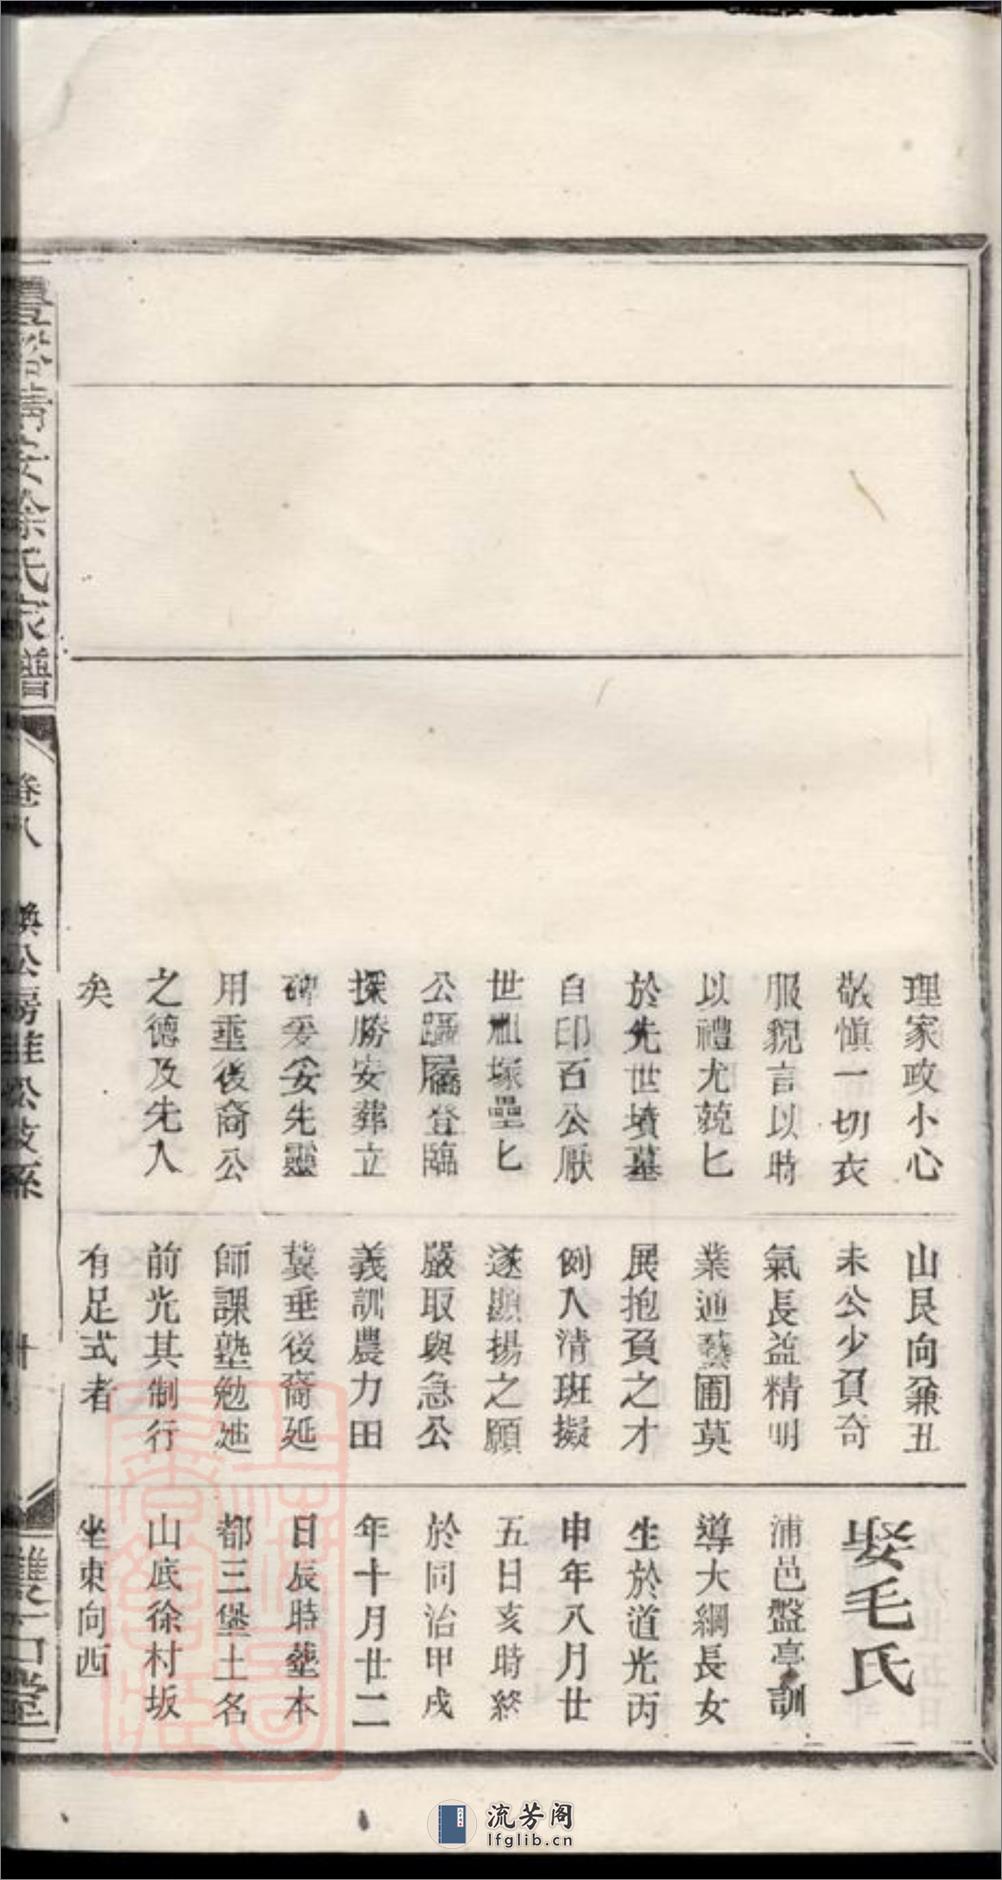 理家政小心
敬愼一切衣
服貌言以時
以禮尤兢匕
於先世墳墓
自印百公厭
世祖塚壘匕
公躡屩登臨
探勝安葬立
碑爰妥先靈
用垂後裔公
之德及先人
矣
山艮向兼丑
未公少負奇
氣長益精明
業通藝圃莫
展抱負之才
例入清班擬
遂顯揚之願
嚴取與急公
義訓農力田
冀垂後裔延
師課塾勉迆
前光其制行
有足式者
娶毛氏
浦邑盤亭訓
導大綱長女
生於道光丙
申年八月廿
五日亥時終
於同治甲戌
年十月廿二
日辰時塟本
都三堡土名
山底徐村坂
坐東向西
清安徐氏家譜
卷八
煥公房
公支系
雙石堂
流芳阁
lfglib.cn